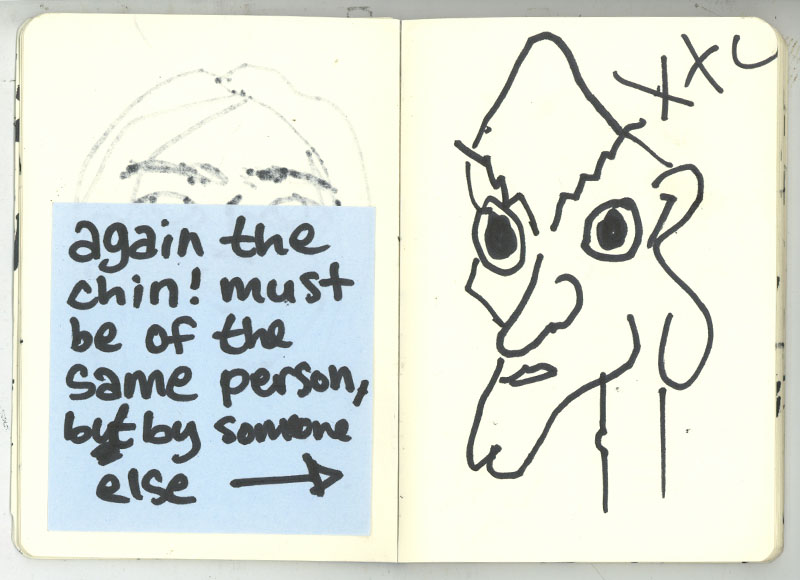 again the
chin! must
be of the
same person,
but by someone
else
XXL